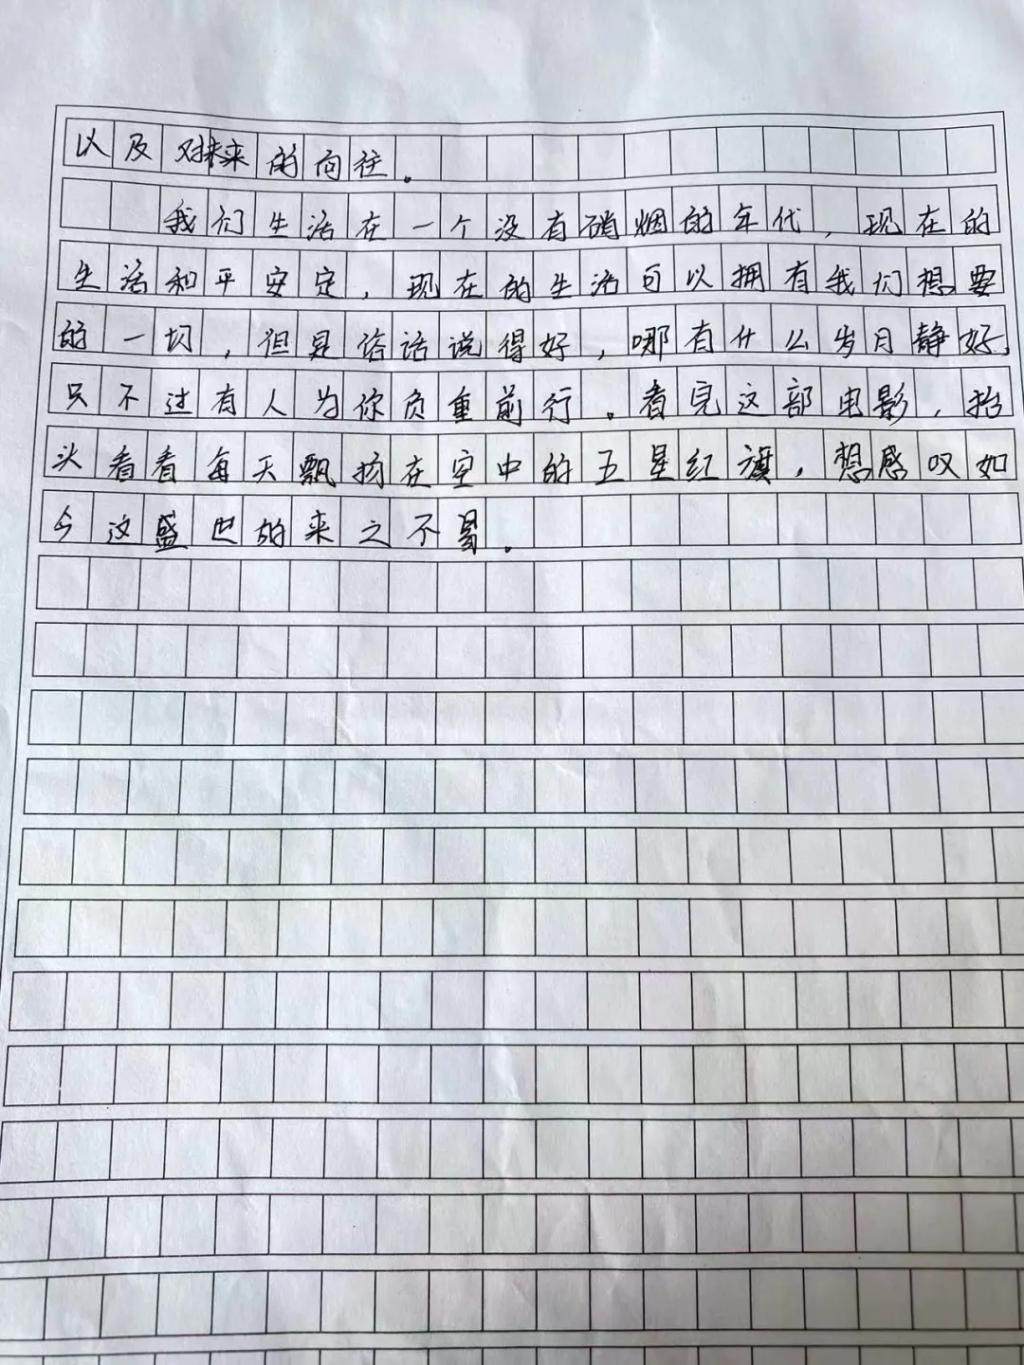 以及对未来的向往。
我们生活在一个没有硝烟的年代，现在的
生活和平安定，现在的生活可以拥有我们想要
的一切，但是俗话说得好，哪有什么岁月静好，
只不过有人为你负重前行。看完这部电影，抬
头看看每天飘扬在空中的五星红旗，想感叹如
今这盛世的来之不易。